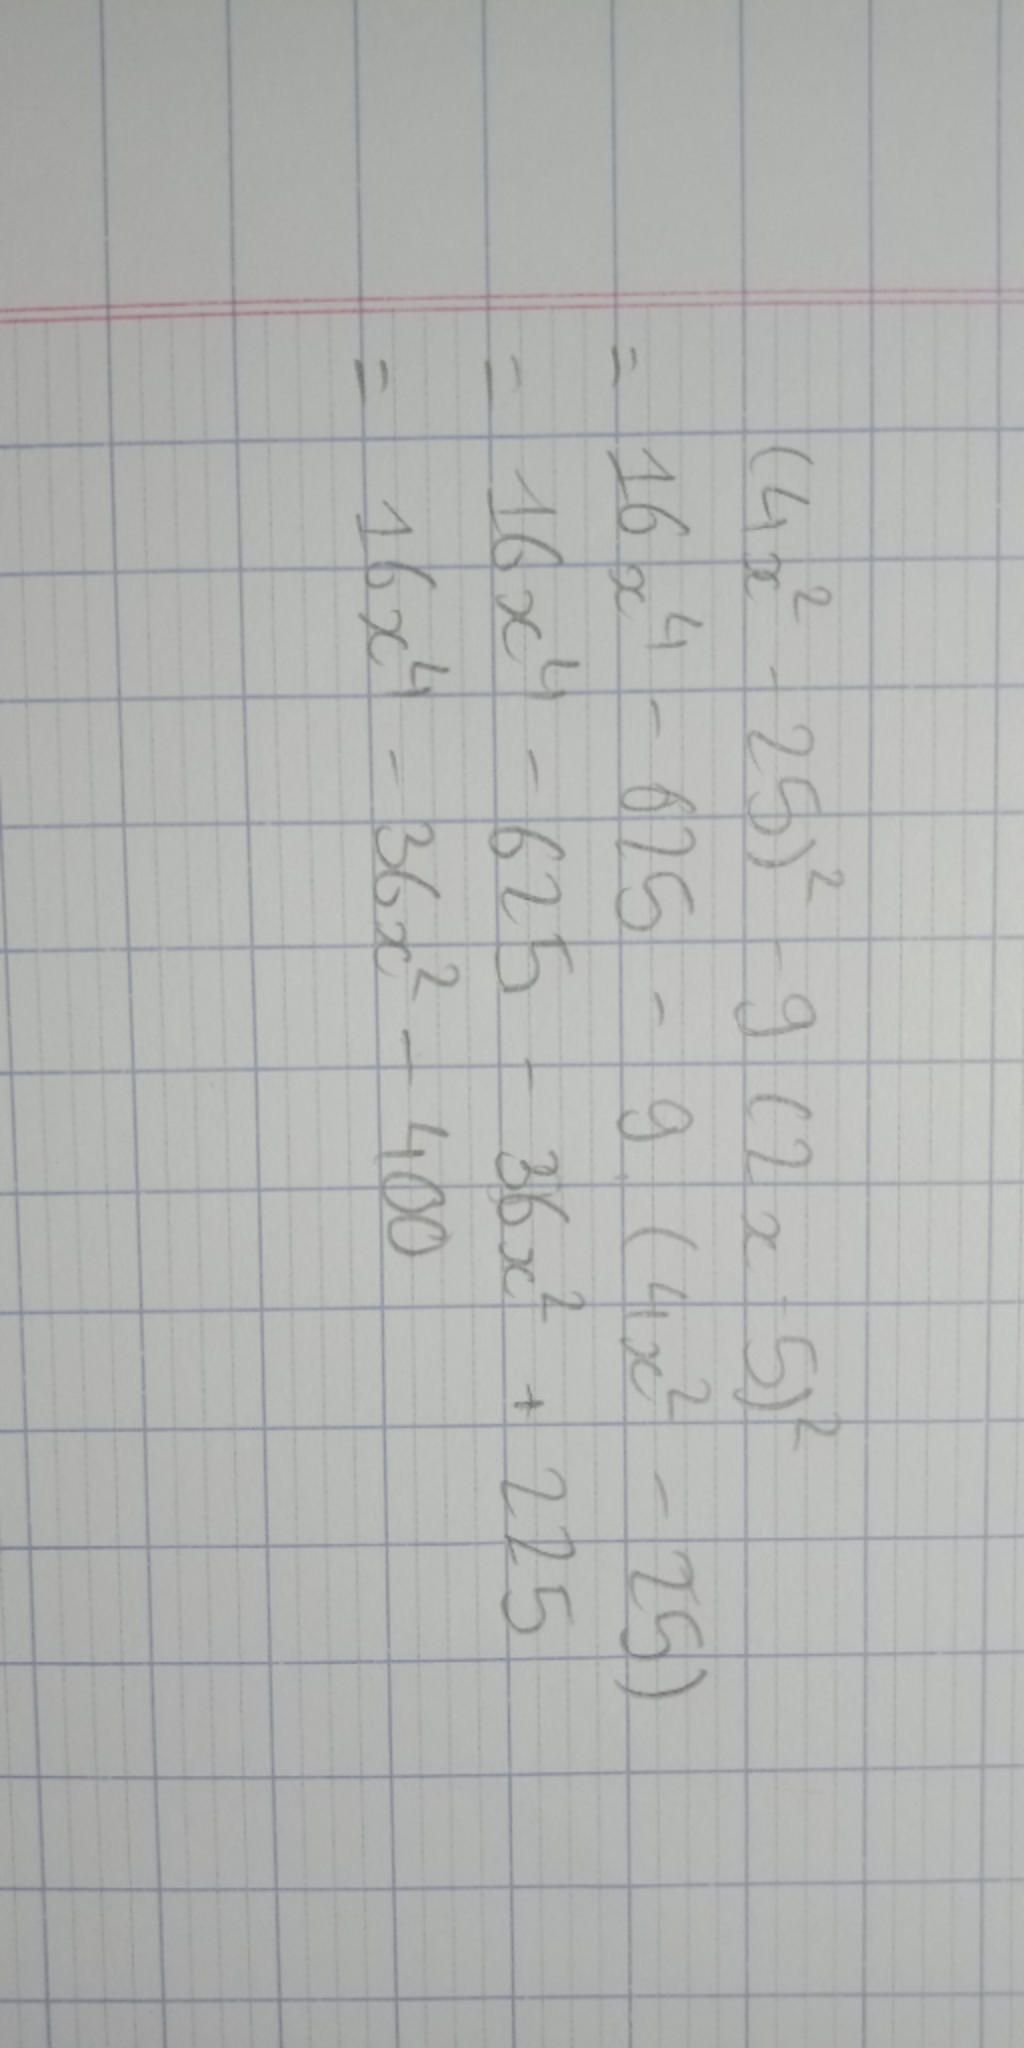 (4x² - 25)² - 9 (2x - 5)²
= 16x⁴ - 625 - 9 (4x² - 25)
= 16x⁴ - 625 - 36x² + 225
= 16x⁴ - 36x² - 400